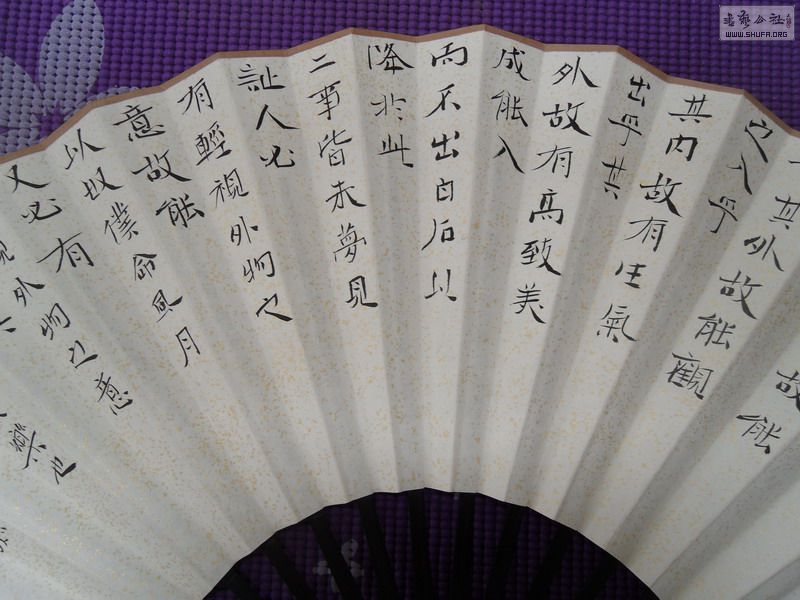 故能
其外故能觀
之入乎
其内故有生氣
出乎其
外故有高致美
成能入
而不出白石以
降於此
二事皆未夢見
人必
有輕視外物之
意故能
以奴僕命風月
又必有
外物之意
樂也
書藝公社
WWW.SHUFA.ORG